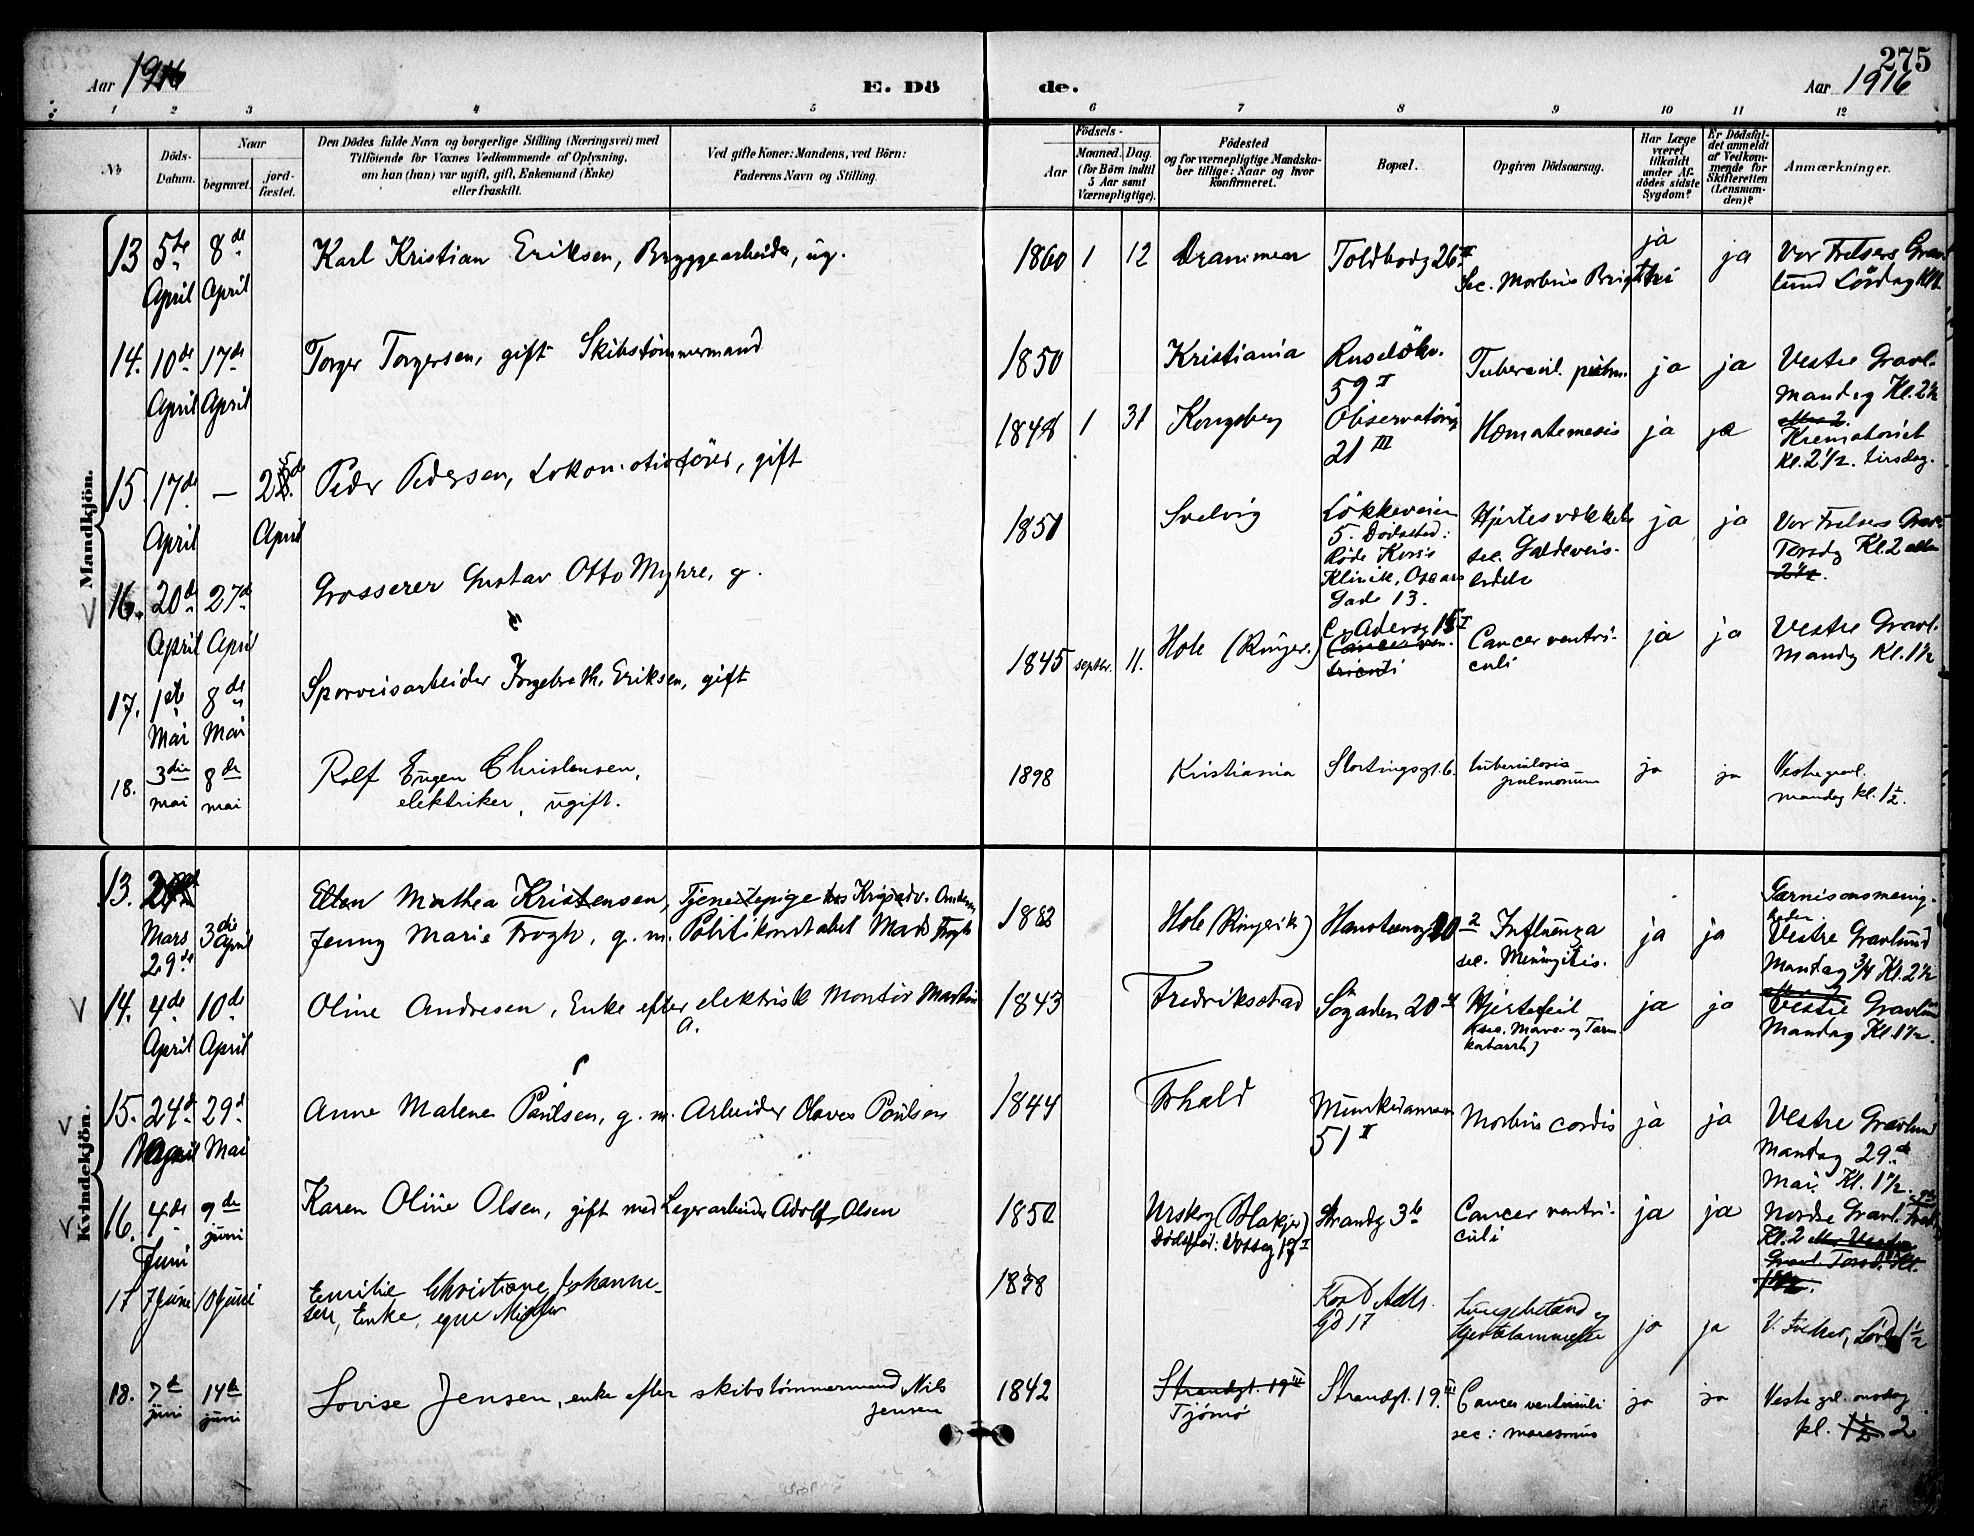 275
Aar 1916
E. Dö
de.
Aar 1916
1 2 3 4 5 6 7 8 9 10 11 12
No
Döds-
Datum.
Naar
begravet.
jord-
fæstet.
Den Dödes fulde Navn og borgerlige Stilling (Næringsvei) med
Tilföiende for Voxnes Vedkommende af Oplysning,
om han (hun) var ugift, gift, Enkemand (Enke)
eller fraskilt.
Ved gifte Koner: Mandens, ved Börn:
Faderens Navn og Stilling.
Födsels-
Aar
Maaned. Dag.
(for Börn indtil
5 Aar samt
Værnepligtige).
Födested
og for værnepligtige Mandska-
ber tillige: Naar og hvor
konfirmeret.
Bopæl.
Opgiven Dödsaarsag.
Har Læge
været
tilkaldt
under Af-
dödes sidste
Sygdom?
Er Dödsfal-
det anmeldt
af Vedkom-
mende for
Skifteretten
(Lensman-
den)?
Anmærkninger.
Mandkjön.
13 5te April 8de April Karl Kristian Eriksen, Bryggearbeider, ug. 1860 1 12 Drammen Toldbodg 26 II
Sec. Morbus Brightii
ja ja Vor Frelsers Grav-
lund Lördag Kl 1.
14. 10de April 17de April Torger Torgersen, gift Skibstömmermand 1850 Kristiania Ruselökv.
59 I
Tubercul. pulm. ja ja Vestre Gravl.
Mandag Kl. 2½
15 17de April — 25de April Peder Pedersen, Lokomotivförer, gift 1848 1 31 Kongsberg Observatorieg
21 III
Hæmatemesis ja ja
Krematoriet
Kl. 2½. tirsdag.
16. 20de April 27de April Grosserer Gustav Otto Myhre, g. 1851 Svelvig Lökkeveien
5. Dödssted:
Röde Kors
Klinik, Oscars
Gade 13.
Hjertesvækkelse
sec. Galdeveis-
lidelse
ja ja Vor Frelsers Grav-
Torsdg Kl. 2 eller
2½.
17. 1ste Mai 8de Mai Sporveisarbeider Ingebreth. Eriksen, gift 1845 septbr. 11. Hole (Ringer.) C. Adersg 15 I
Cancer ven-
Cancer ventri-
culi
ja ja Vestre Gravl.
Mandg Kl. 1½
18. 3die mai 8de mai Rolf Eugen Christensen,
elektriker, ugift.
1898 Kristiania Stortingsgt. 6. tuberculosis
pulmonum
ja ja Vestre gravl.
mandag kl. 1½.
Kvindekjön.
13. Mars 29de 3die April Ellen Mathea Kristensen, Tjenestepige hos
Jenny Marie Frogh, g. m. Politikonstabel Mads Frogh
1882 Hole (Ringerik) Hansteensg 20 2 Influenza
sec. Meningitis.
ja ja Garnisonsmenig-
heden.
Vestre Gravlund
Mandag 3/4 Kl. 2½
14. 4de April 10de April Oline Andresen, Enke efter elektrisk Montör Martin
A.
1843 Fredriksstad Sögaden 20 Hjertefeil
(sec. Mave- og Tarm-
katarrh)
ja ja Vestre Gravlund
Mandag Kl. 1½.
15. 24de Mai 29de Mai Anne Malene Paulsen, g. m. Arbeider Olaves Paulsen 1844 Fr.hald Munkedamsv
51 II
Morbus cordis ja ja Vestre Gravlund
Mandag 29de
Mai Kl. 1½.
16. 4de Juni 9de juni Karen Oline Olsen, gift med Lagerarbeider Adolf Olsen 1850 Urskog (Blakjer)
Strandg 3 b Cancer ventri-
culi
ja ja Nordre Gravl.
Kl. 2 eller Vestre
Gravl. Torsd. Kl.
17 7 Juni 10 Juni Emilie Christiane Johanne-
sen, Enke,
18 Lungebetænd og
Hjertelammelse
ja ja V. Frelser, Lörd 1½
18. 7de juni 14de juni Lovise Jensen, enke efter skibstömmermand Nils
Jensen
1842 Strandgt. 19 III
Tjömö
Strandgt. 19 III. Cancer ventriculi
sec: marasmus
ja ja Vestre grl. onsdag
kl. 1½ 2